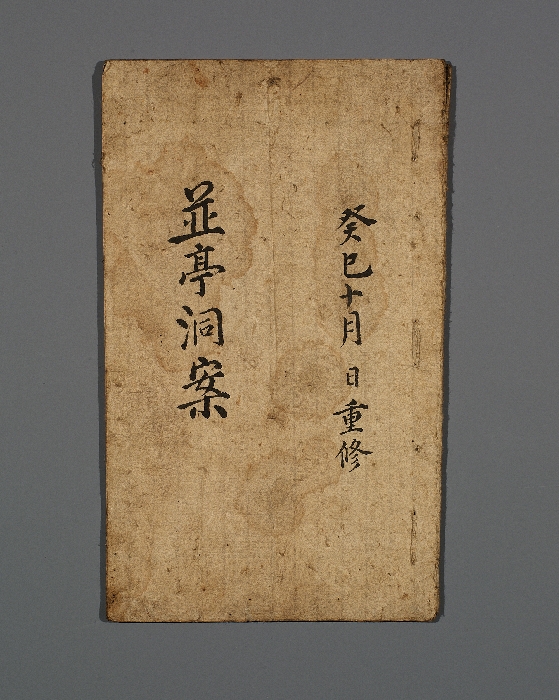 癸巳十月 日重修
並亭洞案